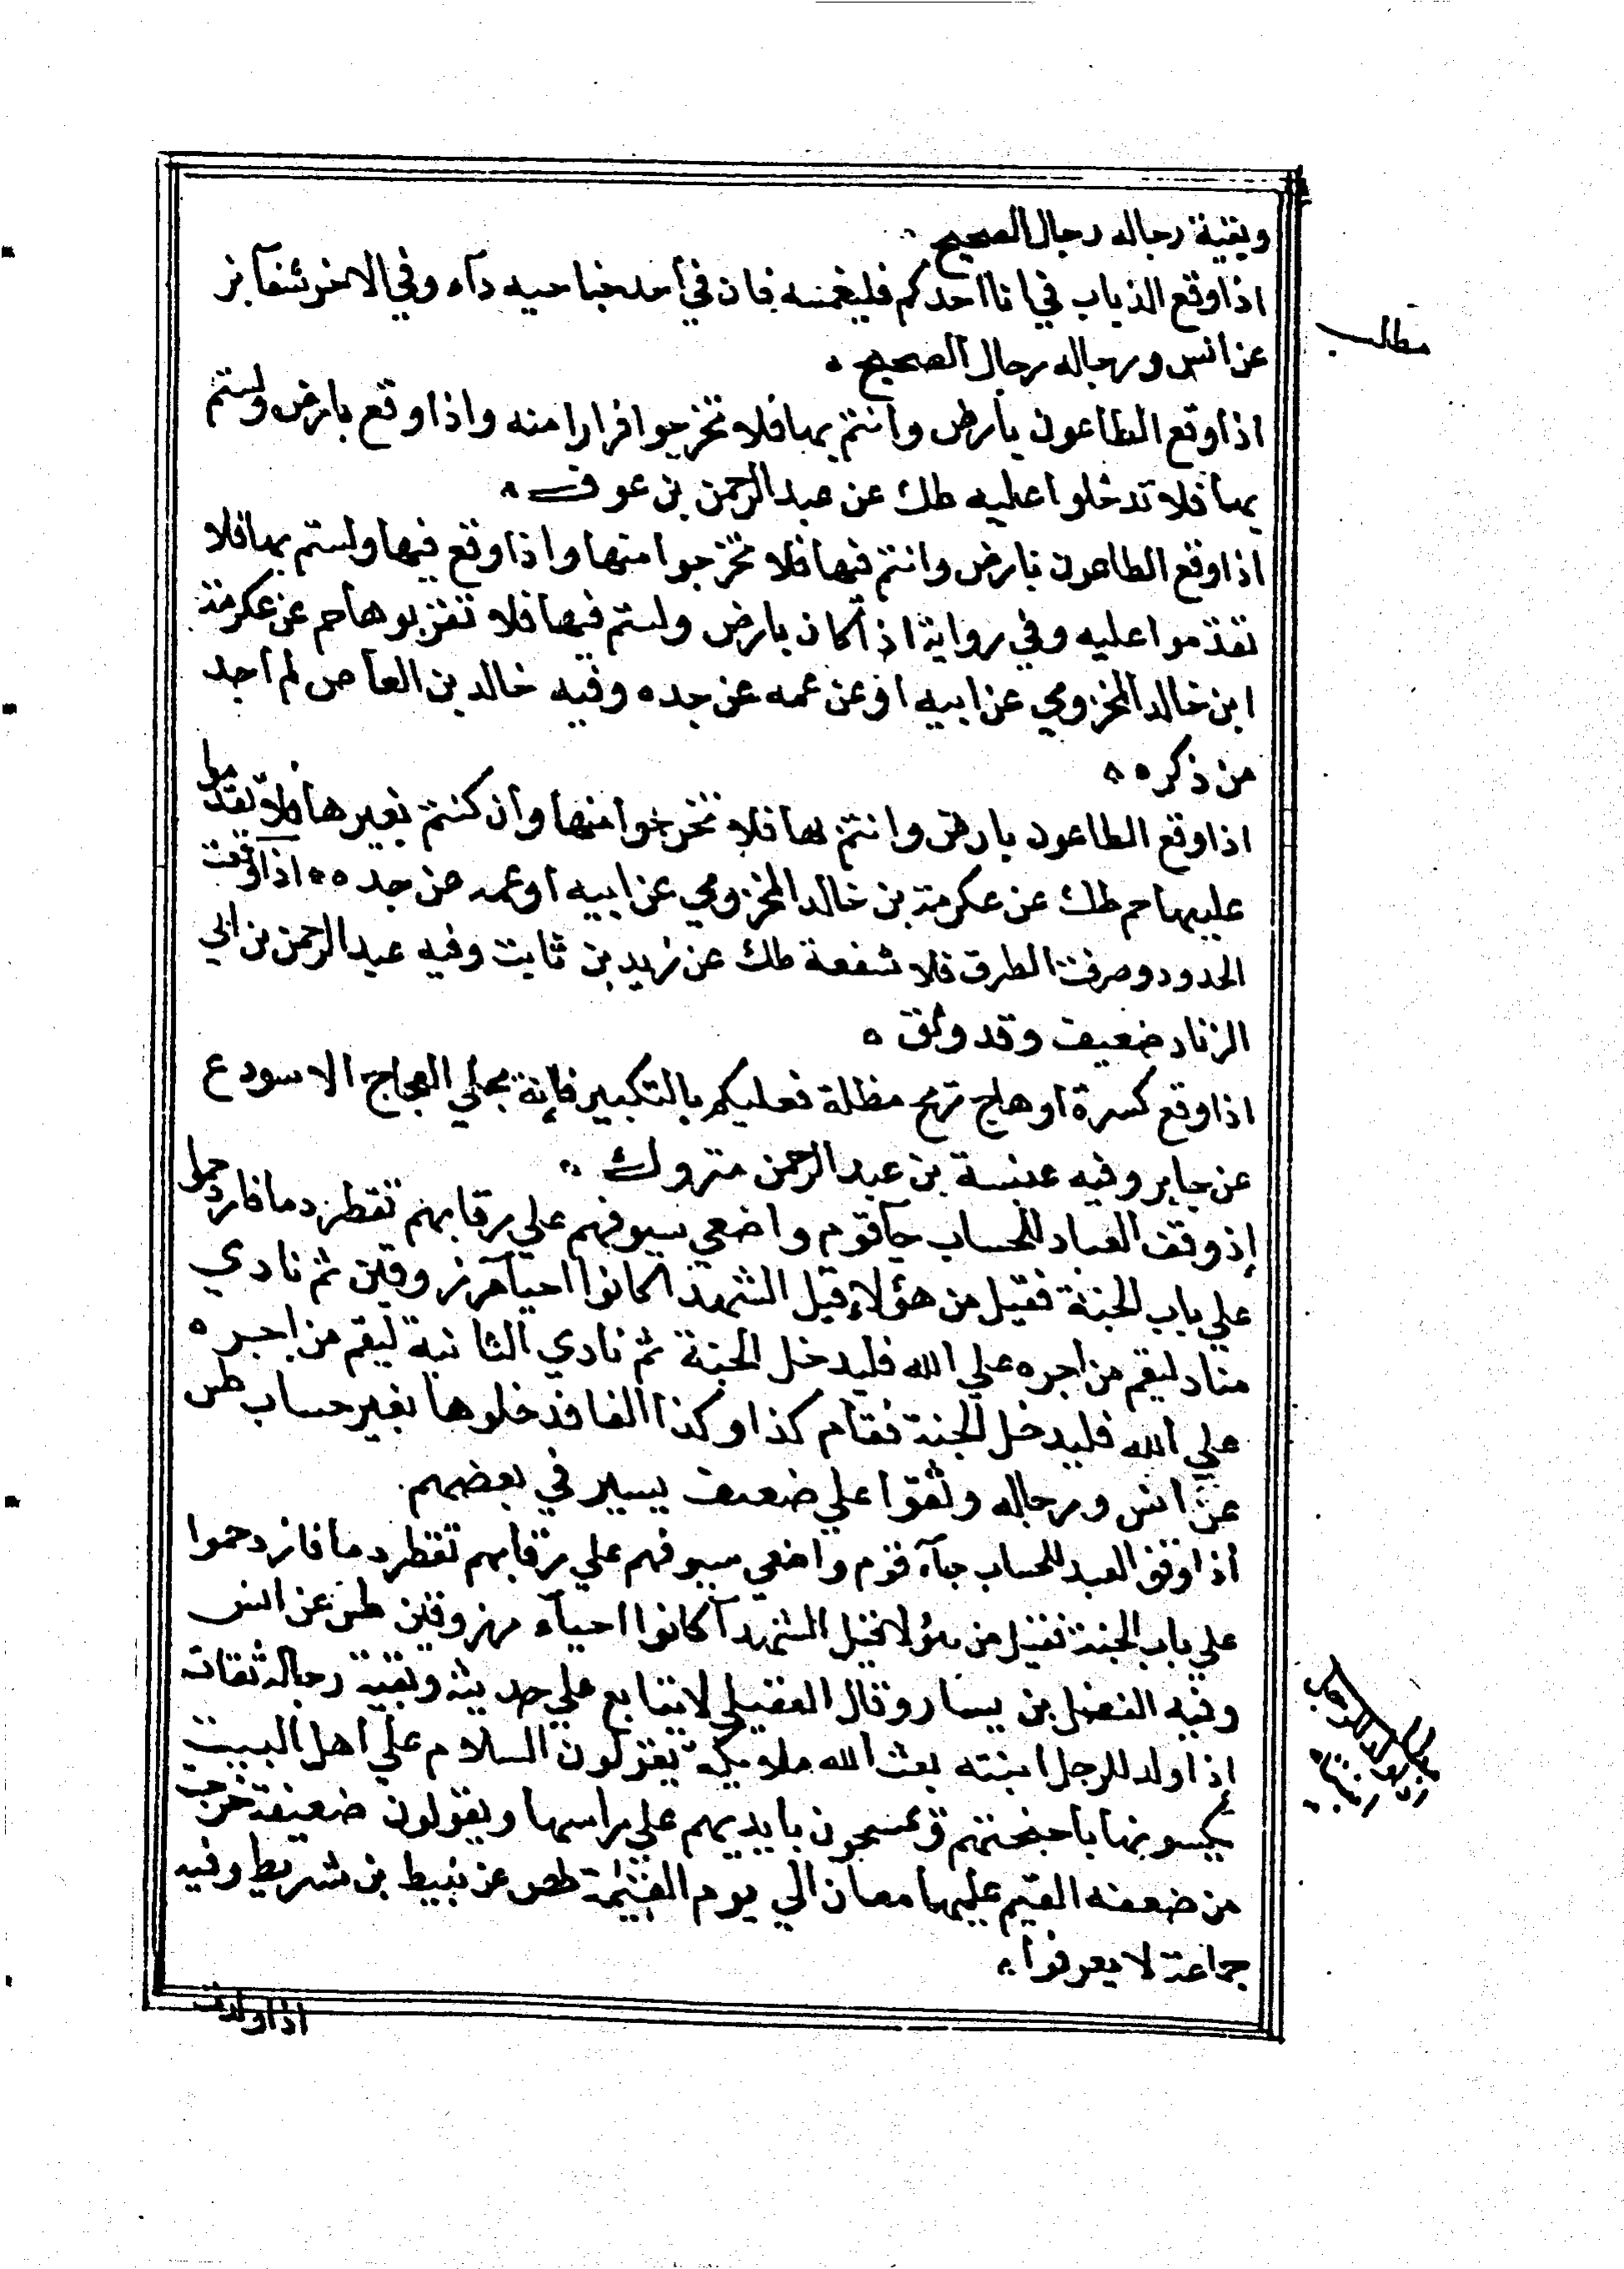 وبقية رجاله رجال الصحيح
اذا وقع الذباب في انا احدكم فليغمسه فان في أحد جناحيه داء وفي الاخر شفآ بز
عن انس ورجاله رجال الصحيح
مطالب
اذا وقع الطاعون بأرض وانتم بها فلا تخرجوا فرارا منه واذا وقع بارض ولستم
بها فلا تدخلوا عليه طك عن عبد الرحمن بن عوف
اذا وقع الطاعون بارض وانتم فيها فلا تخرجوا منها واذا وقع فيها ولستم بها فلا
تقدموا عليه وفي رواية اذا كان بارض ولستم فيها فلا تقربوها حم عن عكرمة
ابن خالد المخزومي عن ابيه او عن عمه عن جده وفيه خالد بن العاص لم اجد
من ذكره
اذا وقع الطاعون بارض وانتم بها فلا تخرجوا منها وان كنتم بغيرها فلا تقدموا
عليها حم طك عن عكرمة بن خالد المخزومي عن ابيه او عمه عن جده اذا وقعت
الحدود وصرفت الطرق فلا شفعة طك عن زيد بن ثابت وفيه عبد الرحمن بن ابي
الزناد ضعيف وقد وثق
اذا وقع كسرة او هاج ريح مظلة فعليكم بالتكبير فإنه يجلي العجاج الاسود ع
عن جابر وفيه عنبسة بن عبد الرحمن متروك
إذ وقف العباد للحساب جآ قوم واضعي سيوفهم علي رقابهم تقطر دما فازدحموا
علي باب الجنة فقيل من هؤلاء قيل الشهدا كانوا احيآ مرزوقين ثم نادي
مناد ليقم من اجره علي الله فليدخل الجنة ثم نادي الثانية ليقم من اجره
علي الله فليدخل الجنة فقام كذا وكذا الفا فدخلوها بغير حساب طس
عن انس ورجاله وثقوا علي ضعف يسير في بعضهم
اذا وقف العبد للحساب جآء قوم واضعي سيوفهم علي رقابهم تقطر دما فازدحموا
علي باب الجنة فقيل من هؤلا فقيل الشهدآ كانوا احيآء مرزوقين طس عن انس
وفيه الفضل بن يسار وقال العقيلي لا يتابع علي حديثه وبقية رجاله ثقات
إذا ولد للرجل ابنته بعث الله ملايكة يقولون السلام علي اهل البيت
يكسونها باجنحتهم ويمسحون بايديهم علي راسها ويقولون ضعيفة خرجت
من ضعفه القيم عليها معان الي يوم القيمة طص عن نبيط بن شريط وفيه
جماعة لا يعرفوا
اذا ولدت